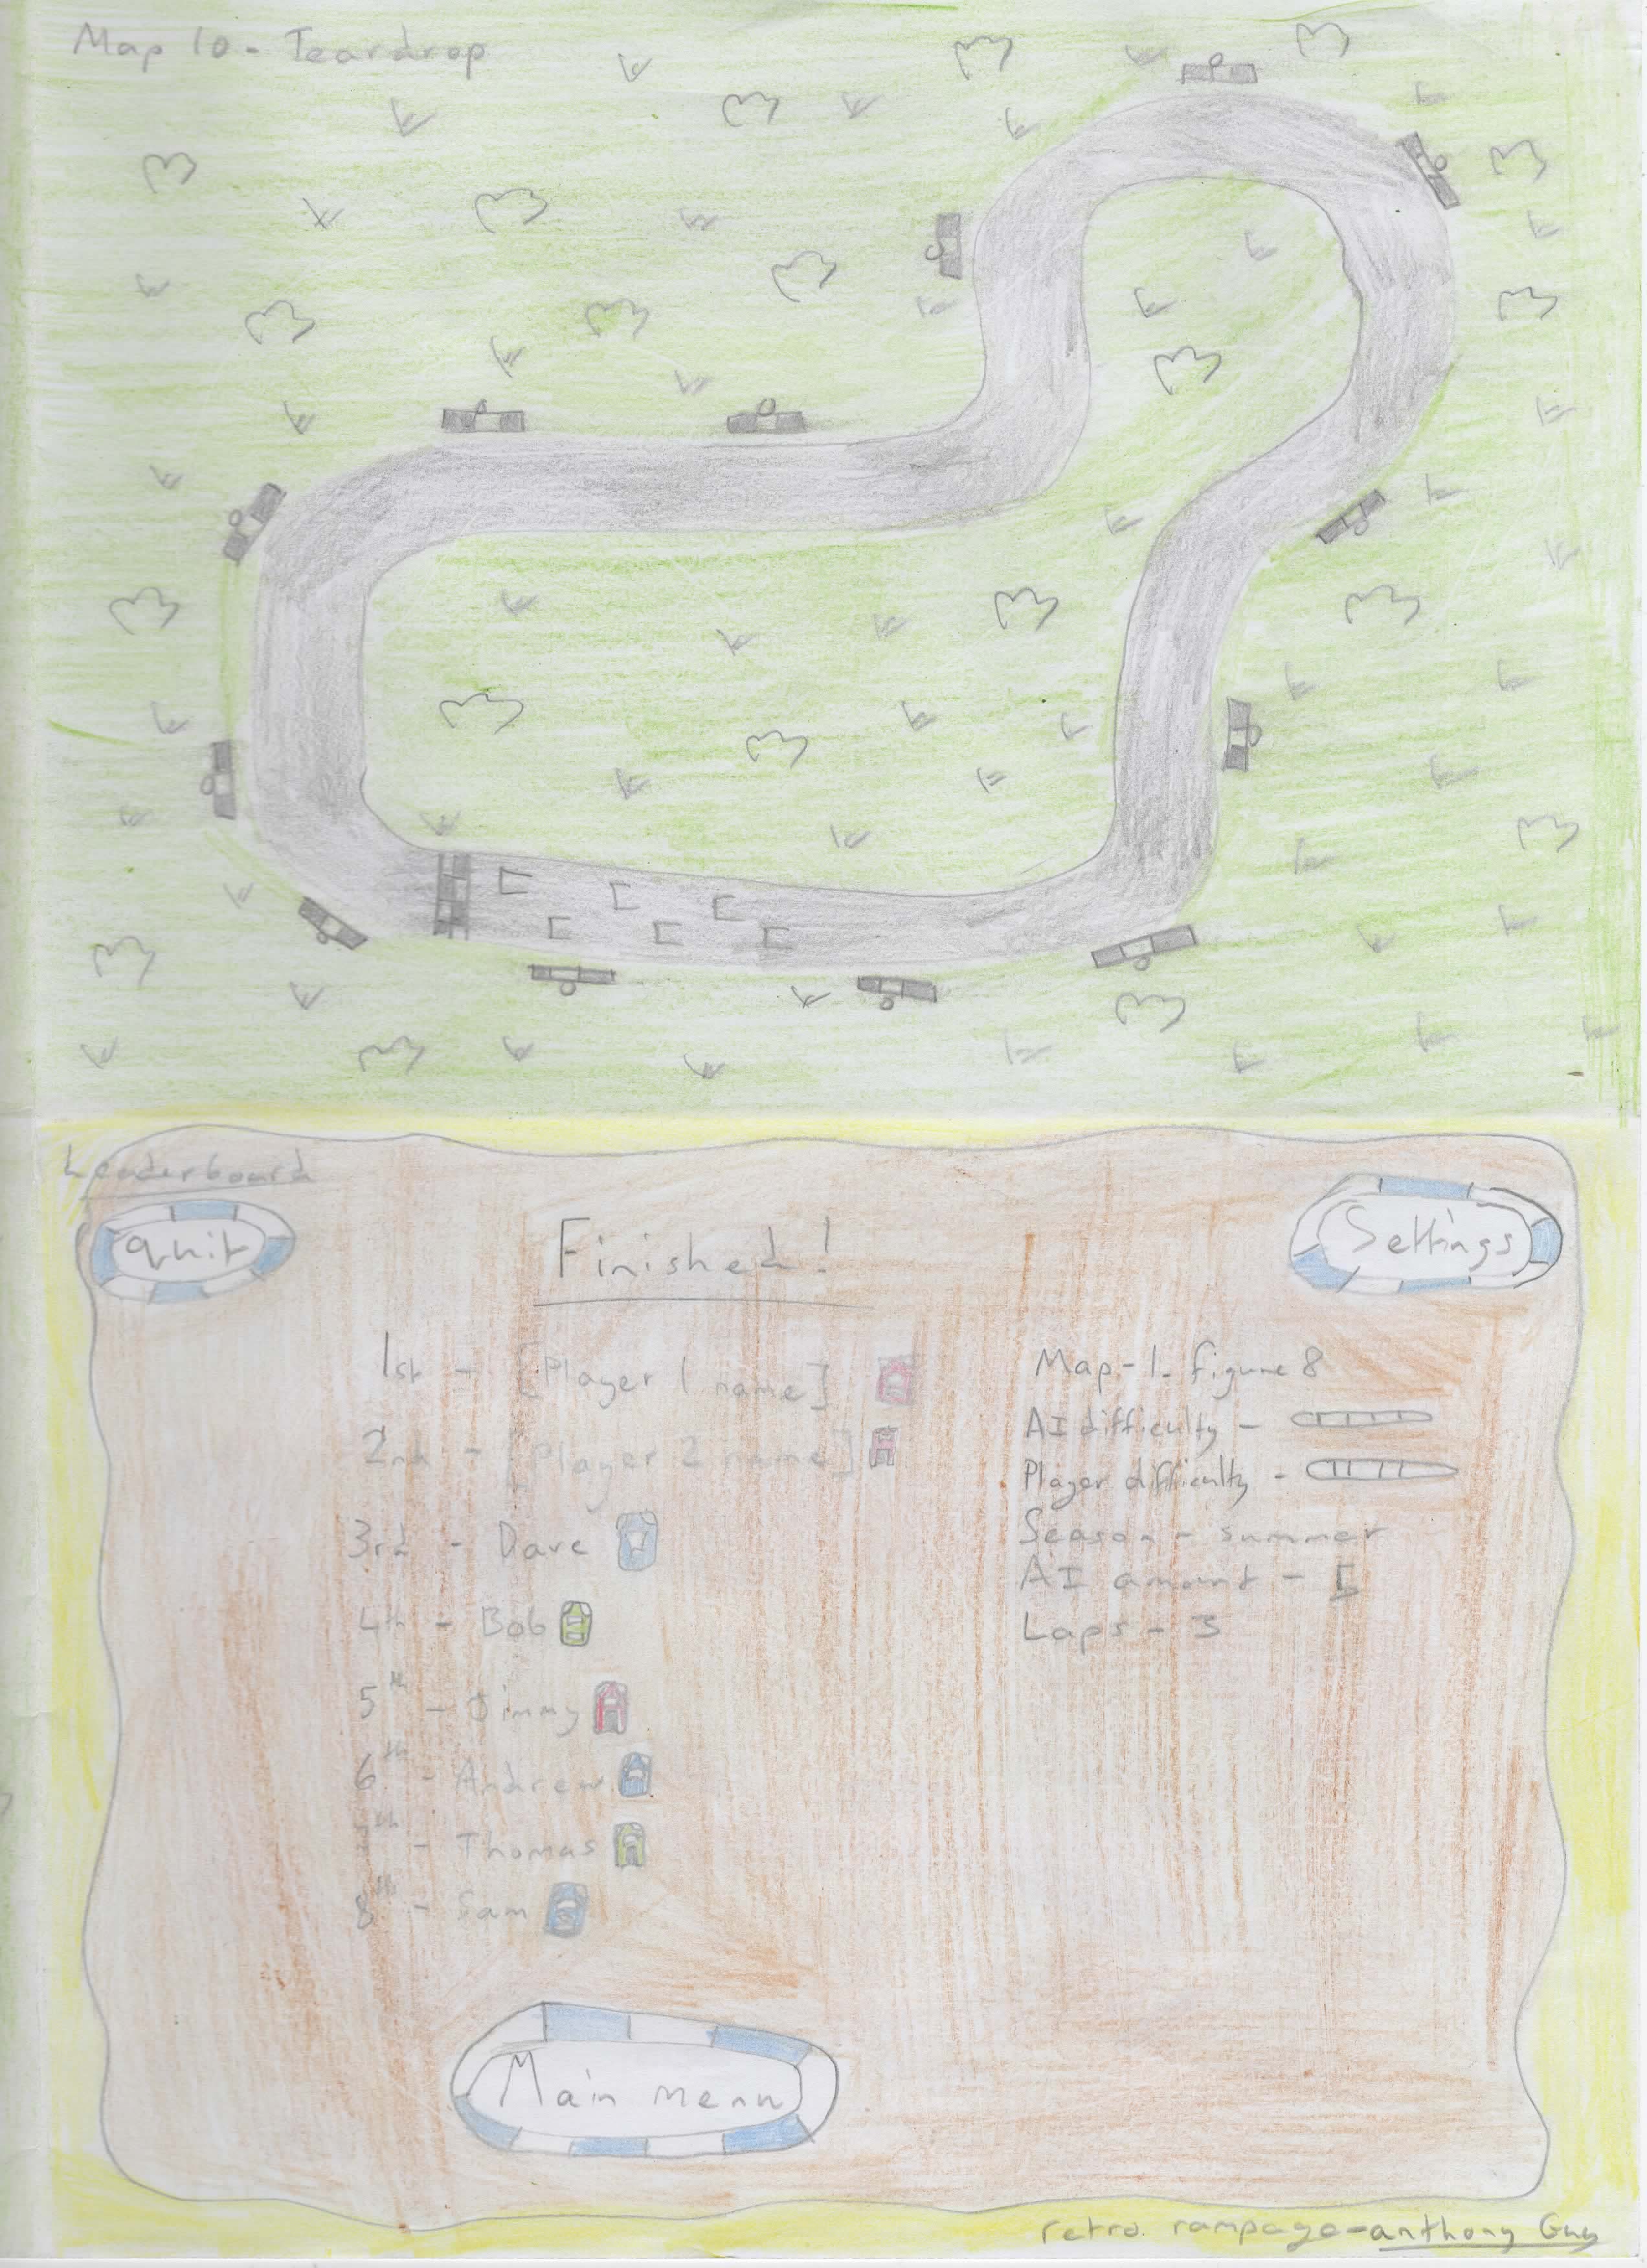 Map 10 - Teardrop
Leaderboard
quit
Settings
Finished!
1st - [Player 1 name]
2nd - [Player 2 name]
3rd - Dave
4th - Bob
5th - Jimmy
6th - Andrew
7th - Thomas
8th - Sam
Map - 1. figure 8
AI difficulty -
Player difficulty -
Season - summer
AI amount -
Laps - 3
Main menu
retro rampage - anthony Guy